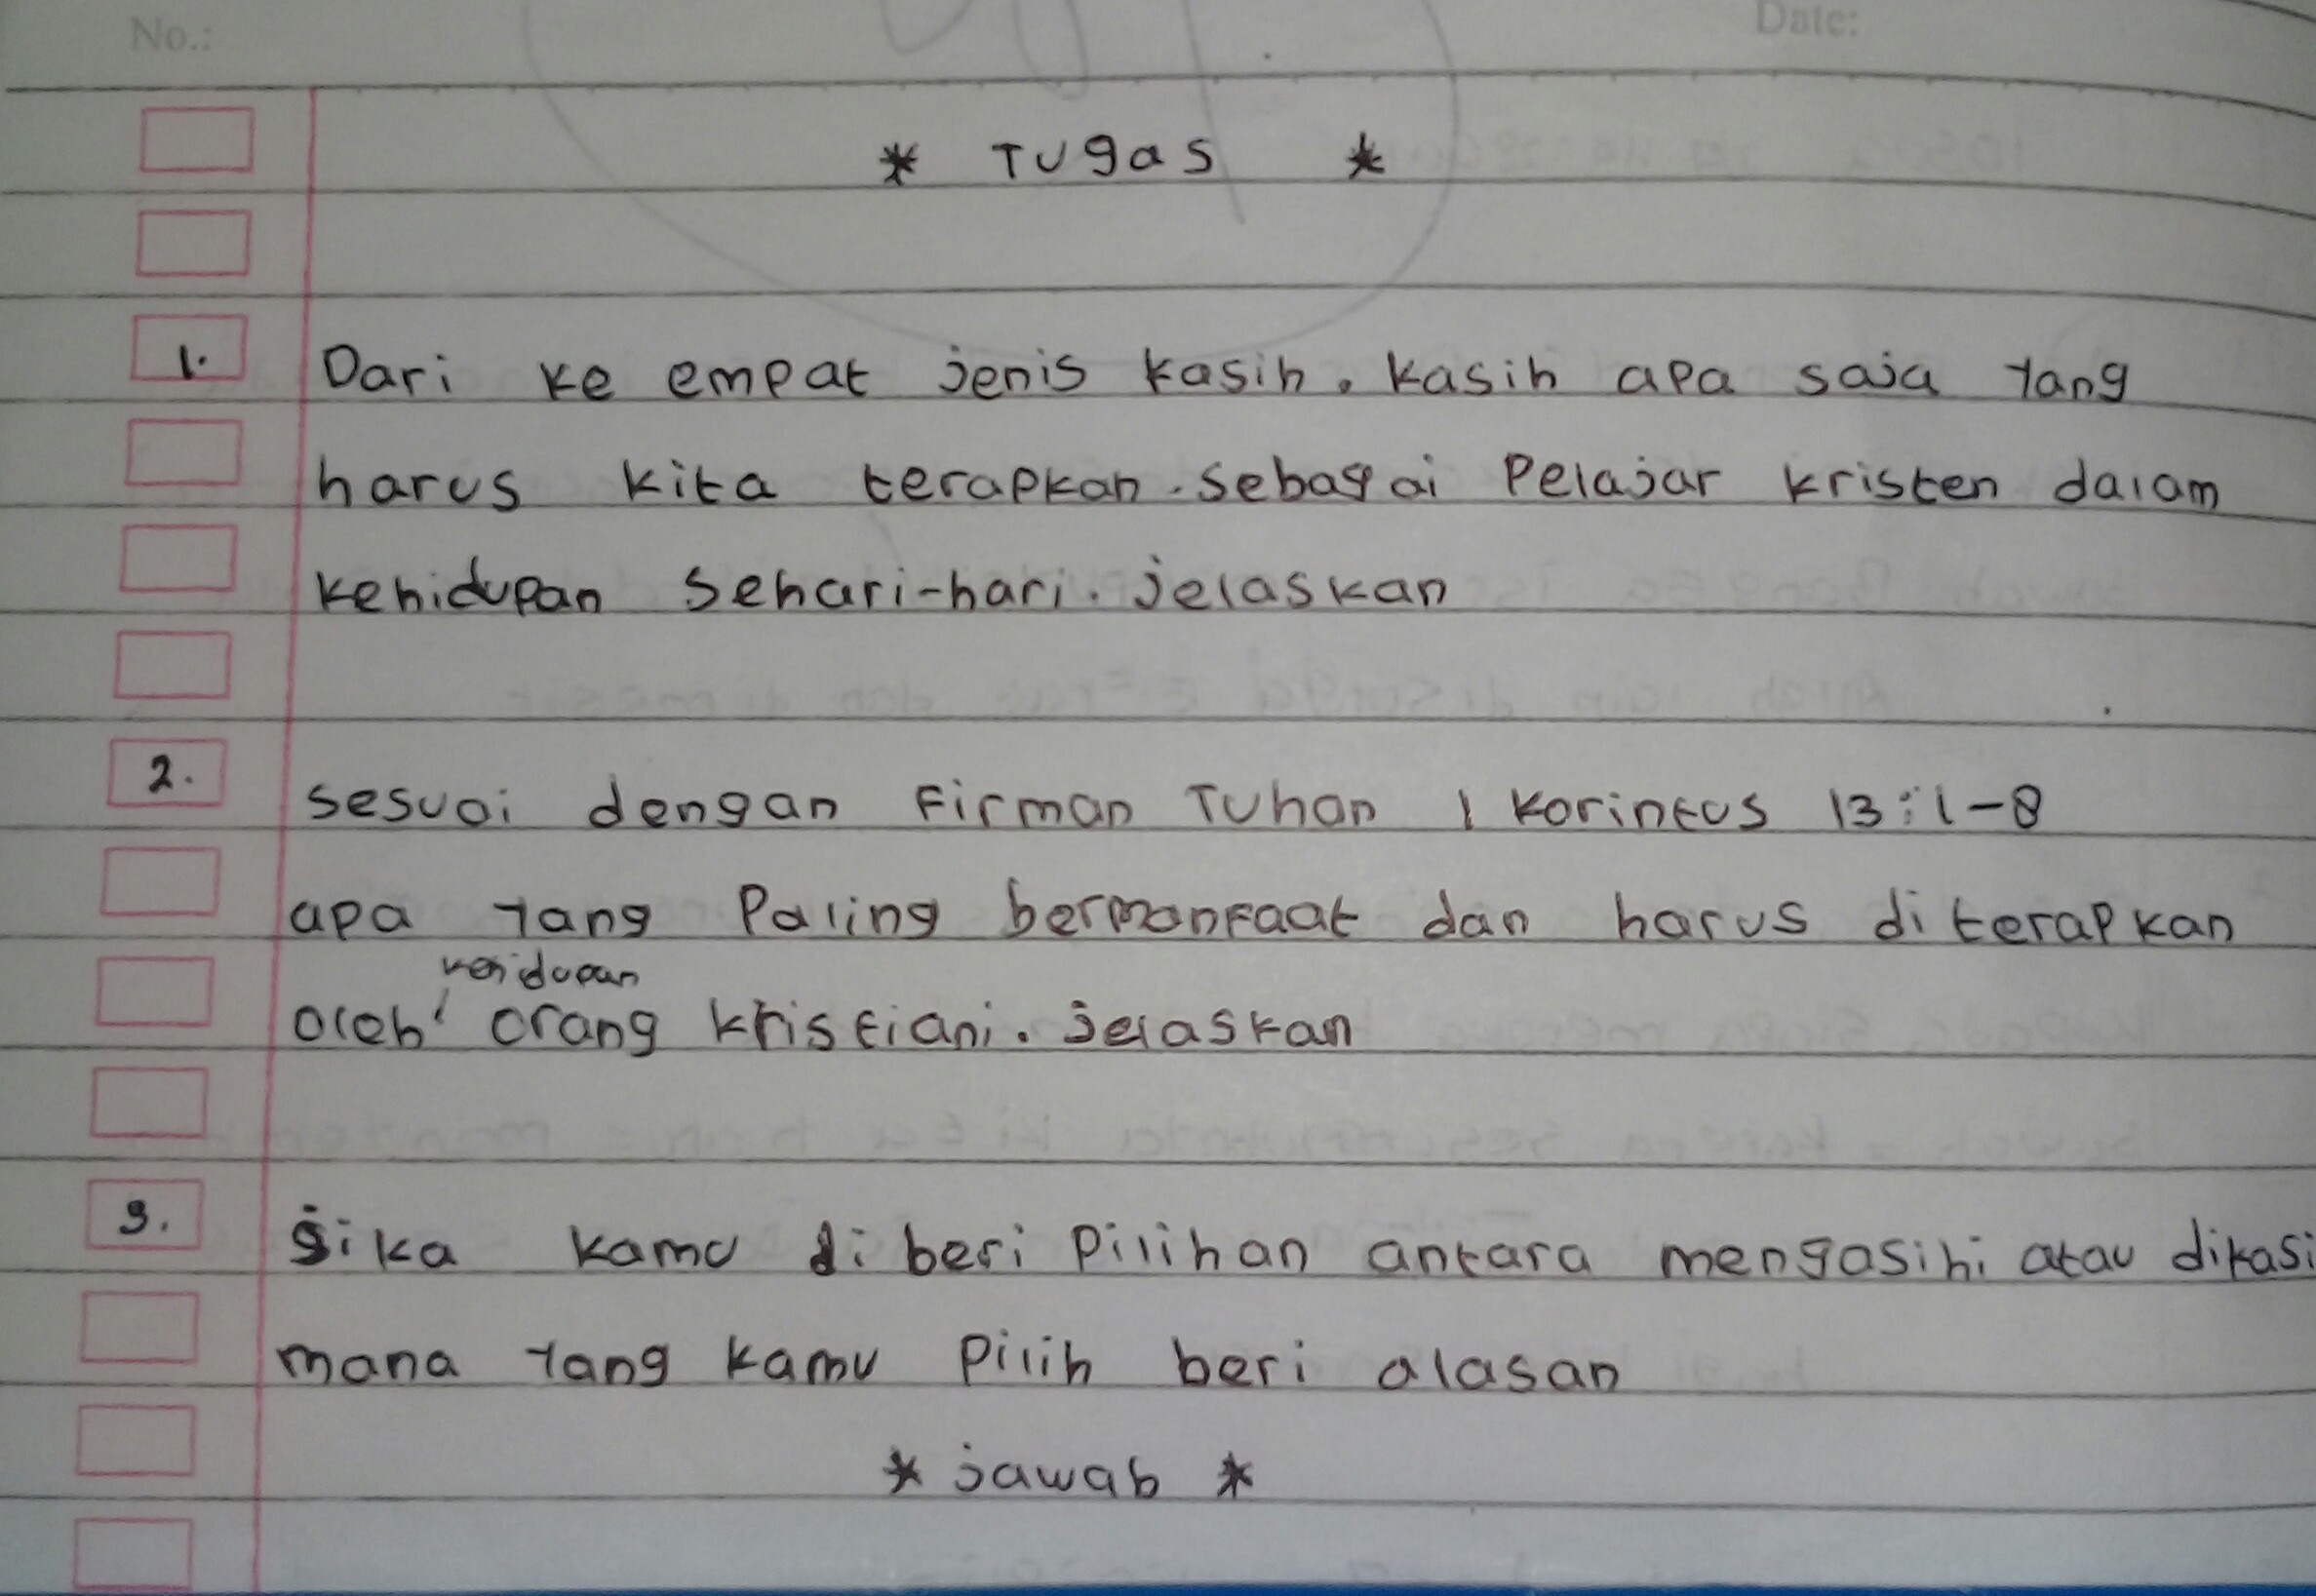 No.:
Date:
* Tugas *
1. Dari ke empat jenis kasih. kasih apa saja yang
harus kita terapkan. sebagai Pelajar kristen dalam
kehidupan sehari-hari. jelaskan
2. sesuai dengan Firman Tuhan 1 Korintus 13:1-8
apa yang Paling bermanfaat dan harus di terapkan
kehidupan
oleh orang kristiani. jelaskan
3. jika kamu di beri Pilihan antara mengasihi atau dikasi
mana yang kamu Pilih beri alasan
* jawab *